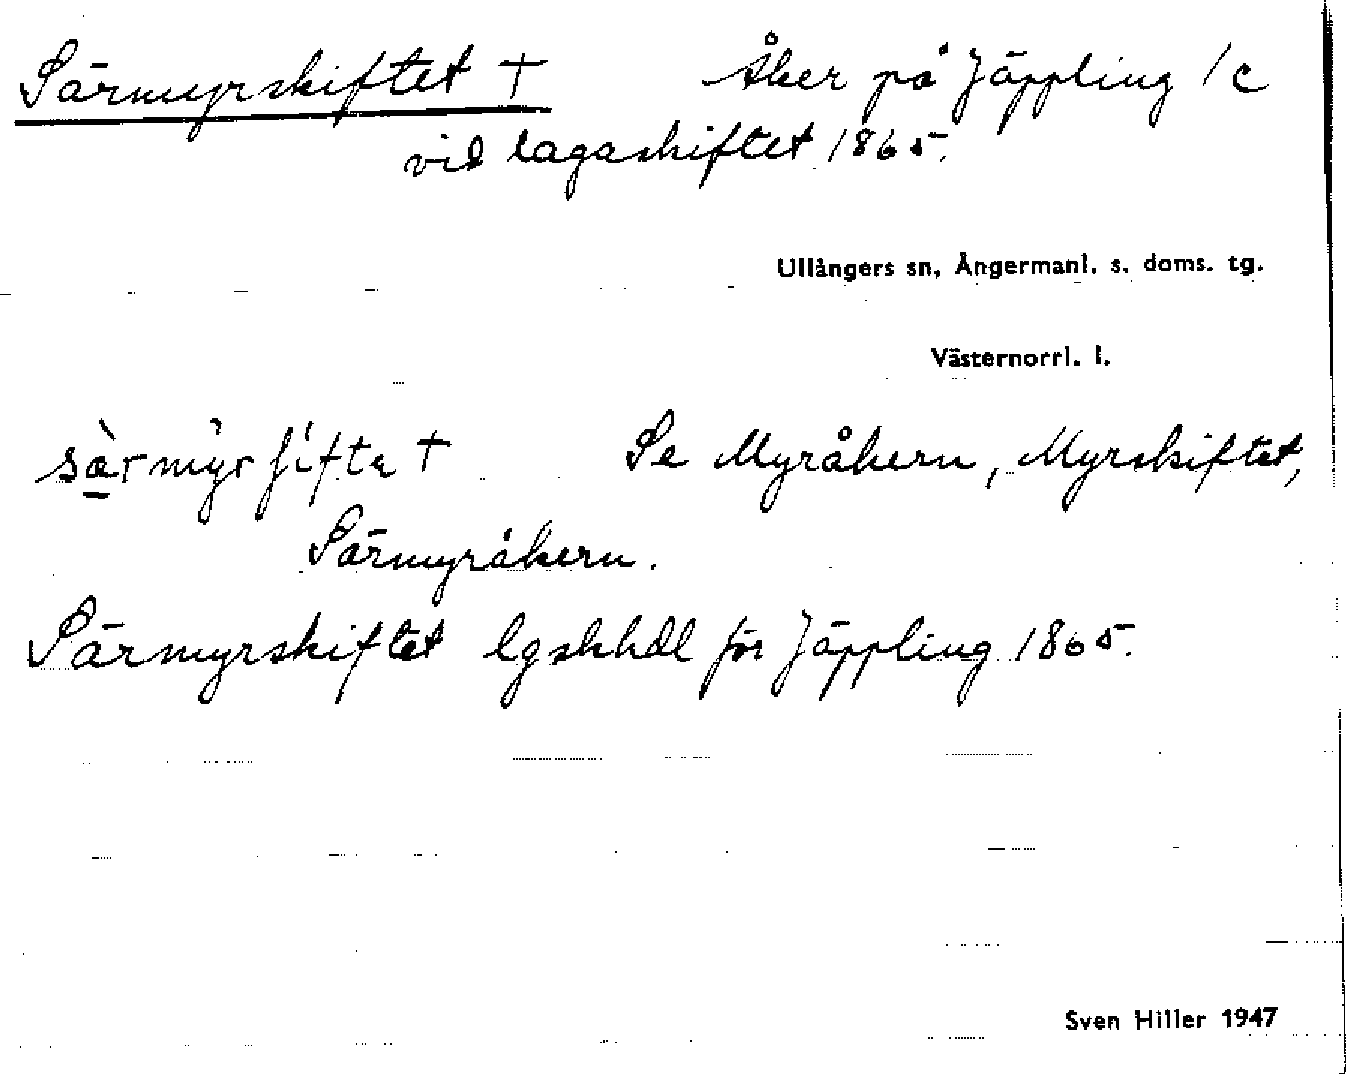 Särmyrskiftet + Åker på Jäppling 1c
vid lagaskiftet 1865.
Ullångers sn, Ångermanl. s. doms. tg.
Västernorrl. l.
sæ̀rmỳrʃiftɛ + Se Myråkern, Myrskiftet,
Särmyråkern.
Särmyrskiftet lgskhdl för Jäppling 1865.
Sven Hiller 1947